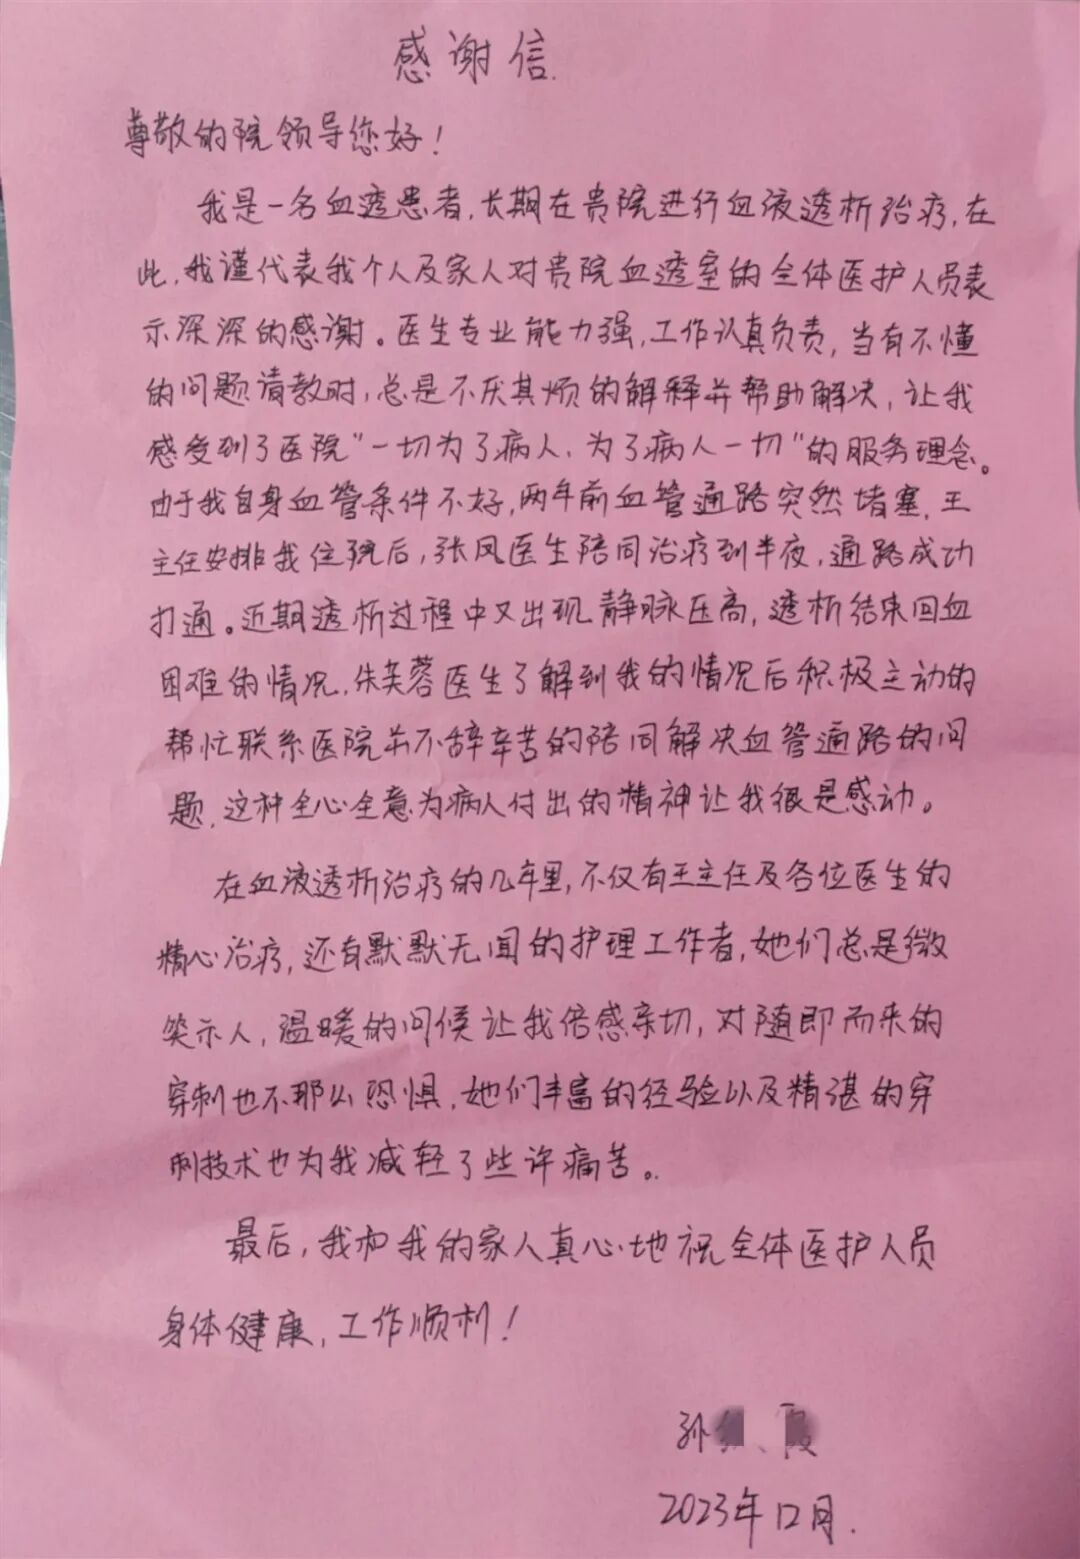 感谢信.
尊敬的院领导您好！
我是一名血透患者，长期在贵院进行血液透析治疗，在
此，我谨代表我个人及家人对贵院血透室的全体医护人员表
示深深的感谢。医生专业能力强，工作认真负责，当有不懂
的问题请教时，总是不厌其烦的解释并帮助解决，让我
感受到了医院“一切为了病人、为了病人一切”的服务理念。
由于我自身血管条件不好，两年前血管通路突然堵塞，王
主任安排我住院后，张凤医生陪同治疗到半夜，通路成功
打通。近期透析过程中又出现静脉压高，透析结束回血
困难的情况，朱芙蓉医生了解到我的情况后积极主动的
帮忙联系医院并不辞辛苦的陪同解决血管通路的问
题，这种全心全意为病人付出的精神让我很是感动。
在血液透析治疗的几年里，不仅有王主任及各位医生的
精心治疗，还有默默无闻的护理工作者，她们总是微
笑示人，温暖的问候让我倍感亲切，对随即而来的
穿刺也不那么恐惧，她们丰富的经验以及精湛的穿
刺技术也为我减轻了些许痛苦。
最后，我和我的家人真心地祝全体医护人员
身体健康，工作顺利！
孙
2023年12月.